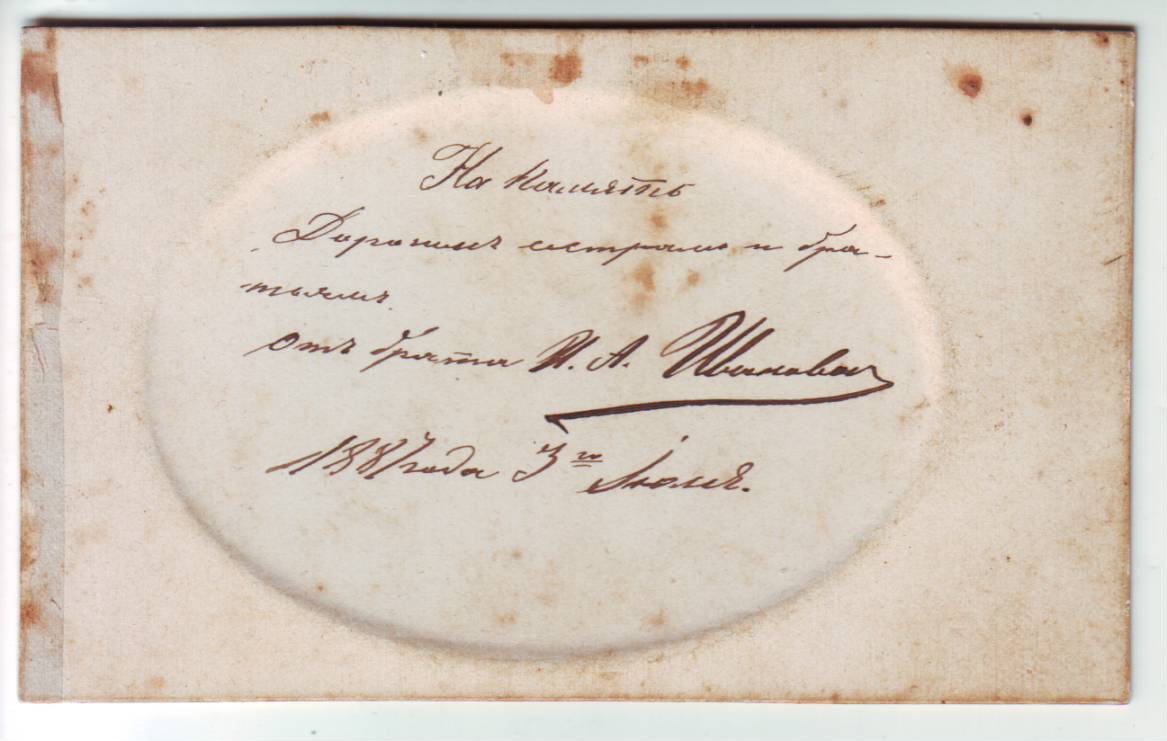 На память
Дорогимъ сестрамъ и бра-
тьямъ
отъ брата И. А. Иванова
1887 года 3го Іюля.